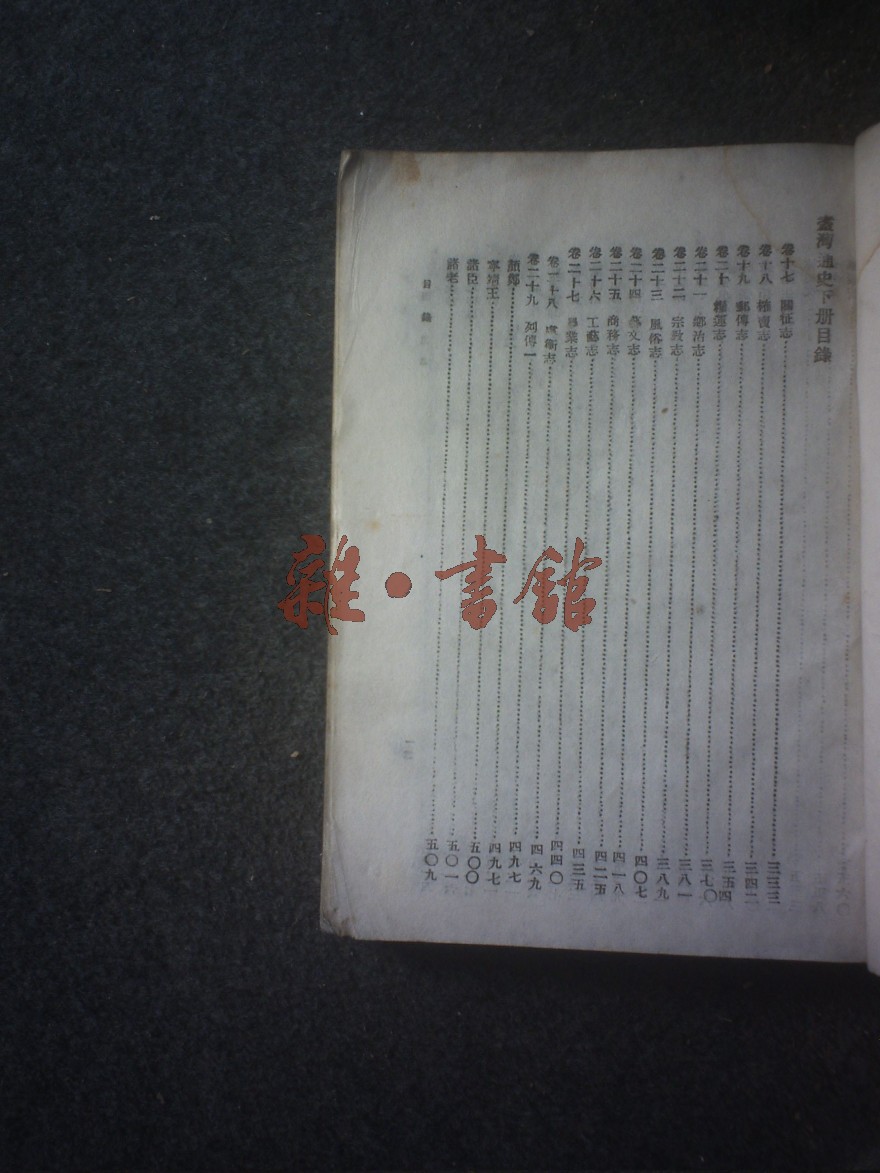 臺灣通史下册目錄
卷十七 關征志……三三三
卷十八 榷賣志……三四二
卷十九 郵傳志……三五四
卷二十 糧運志……三七〇
卷二十一 鄉治志……三八一
卷二十二 宗教志……三八九
卷二十三 風俗志……四〇七
卷二十四 藝文志……四一八
卷二十五 商務志……四二五
卷二十六 工藝志……四三五
卷二十七 農業志……四四〇
卷二十八 虞衡志……四六九
卷二十九 列傳一……四九七
顏鄭……四九七
寧靖王……五〇〇
諸臣……五〇一
諸老……五〇九
目錄
雜·書館